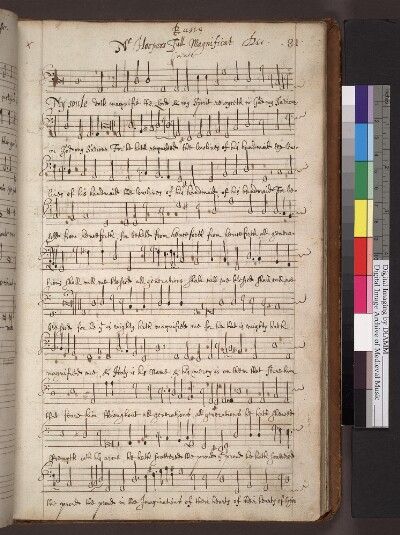 Bass
Mr Hoopers Full Magnificat &c. 81
My soule doth magnifie the lord & my spirit rejoyceth in God my Saviour
in God my Saviour For he hath regarded the lowlines of his handmaid the low-
lines of his handmaid the lowlines of his handmaid of his handmaid For be-
from henceforth for behold from henceforth from henceforth all genera-
tions shall call me blessed all generations shall call me blessed shall call me
blessed for he yt is mighty hath magnified me for he that is mighty hath
magnified me & Holy is his Name & his mercy is on them that feare him
that feare him throughout all generations all generations he hath shewed
strength with his arme he hath scattered the proude ye proude he hath scattered
the proude the proude in the Imagination of their hearts of their hearts of their
Digital Imaging by DIAMM
Digital Image Archive of Medieval Music